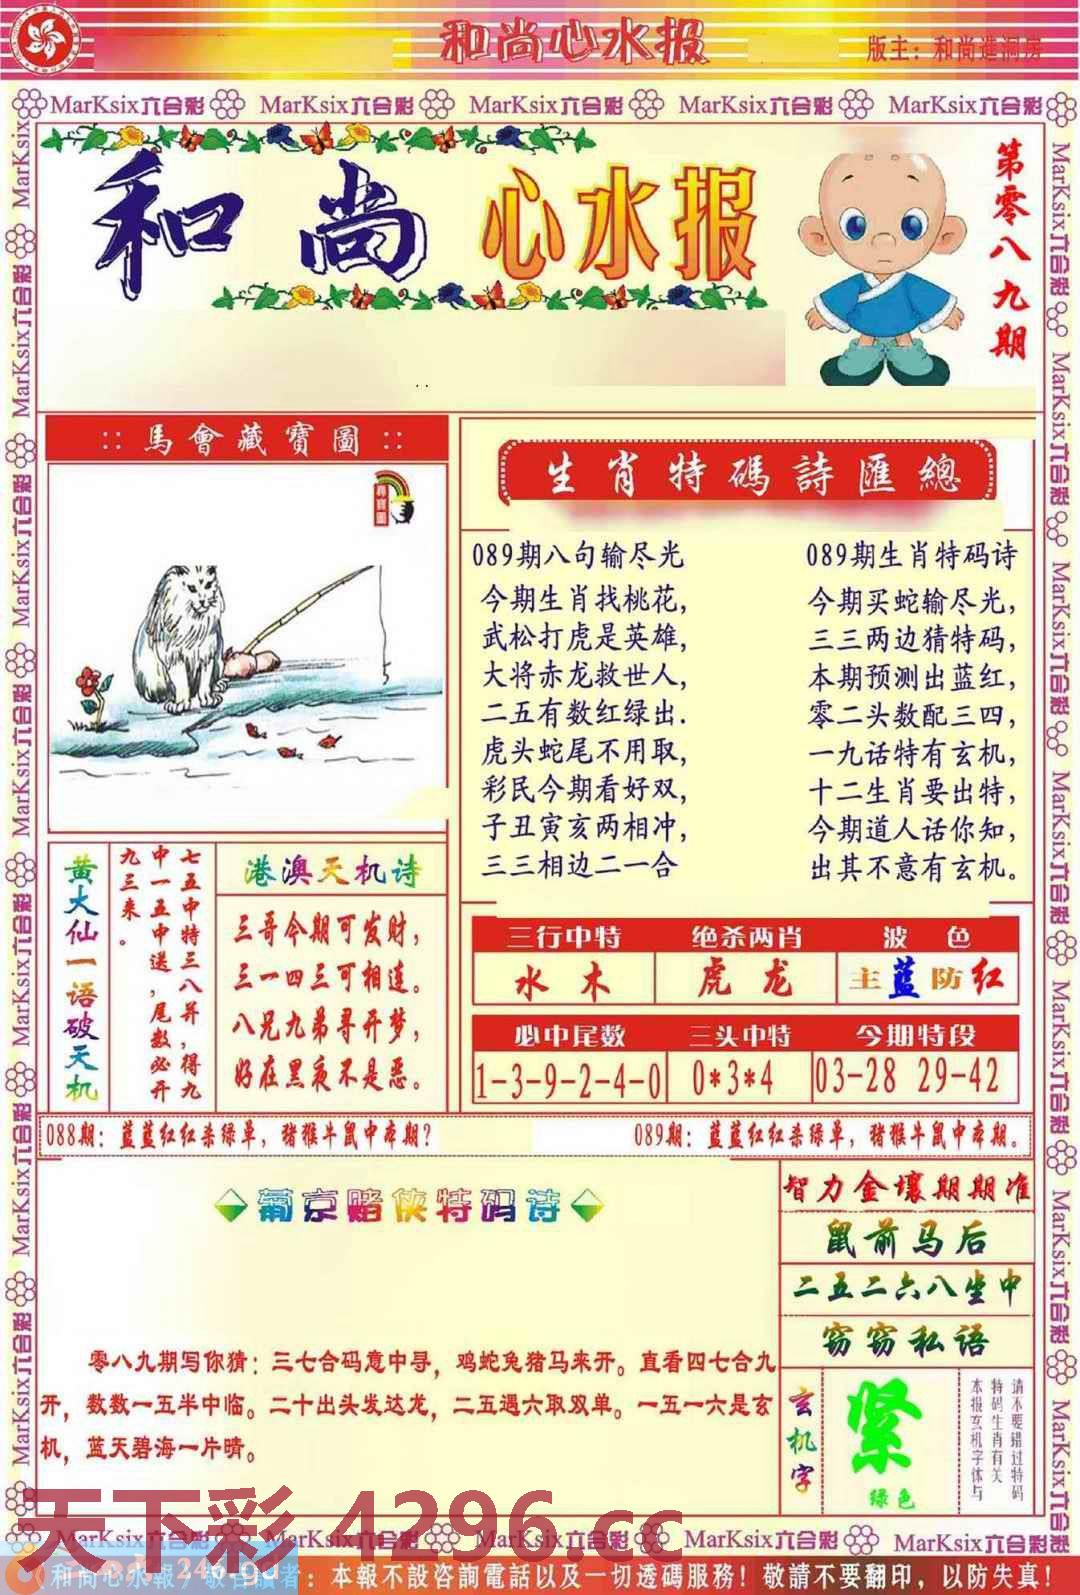 和尚心水报
版主：和尚進洞房
MarKsix六合彩 MarKsix六合彩 MarKsix六合彩 MarKsix六合彩 MarKsix六合彩
和尚 心水报
第零八九期
::馬會藏寶圖::
尋寶圖
生肖特碼詩匯總
089期八句输尽光
今期生肖找桃花,
武松打虎是英雄,
大将赤龙救世人,
二五有数红绿出.
虎头蛇尾不用取,
彩民今期看好双,
子丑寅亥两相冲,
三三相边二一合
089期生肖特码诗
今期买蛇输尽光,
三三两边猜特码,
本期预测出蓝红,
零二头数配三四,
一九话特有玄机,
十二生肖要出特,
今期道人话你知,
出其不意有玄机。
黄大仙一语破天机
七五中特三八并,得九
中一五中送,尾数必开
九三来。
港澳天机诗
三哥今期可发财,
三一四三可相连。
八兄九弟寻开梦,
好在黑夜不是恶。
三行中特 绝杀两肖 波色
水木 虎龙 主蓝防红
必中尾数 三头中特 今期特段
1-3-9-2-4-0 0*3*4 03-28 29-42
088期: 蓝蓝红红杀绿单, 猪猴牛鼠中本期?
089期: 蓝蓝红红杀绿单, 猪猴牛鼠中本期。
葡京赌侠特码诗
零八九期写你猜：三七合码意中寻，鸡蛇兔猪马来开。直看四七合九
开，数数一五半中临。二十出头发达龙，二五遇六取双单。一五一六是玄
机，蓝天碧海一片晴。
智力金壤期期准
鼠前马后
二五二六八坐中
窃窃私语
玄机字
紧
绿色
请不要错过特码
特码生肖有关
本报玄机字体与
MarKsix六合彩 MarKsix六合彩 MarKsix六合彩 MarKsix六合彩 MarKsix六合彩
天下彩 4296.cc
246.gd
和尚心水報 敬告讀者：本報不設咨詢電話以及一切透碼服務！敬請不要翻印，以防失真！